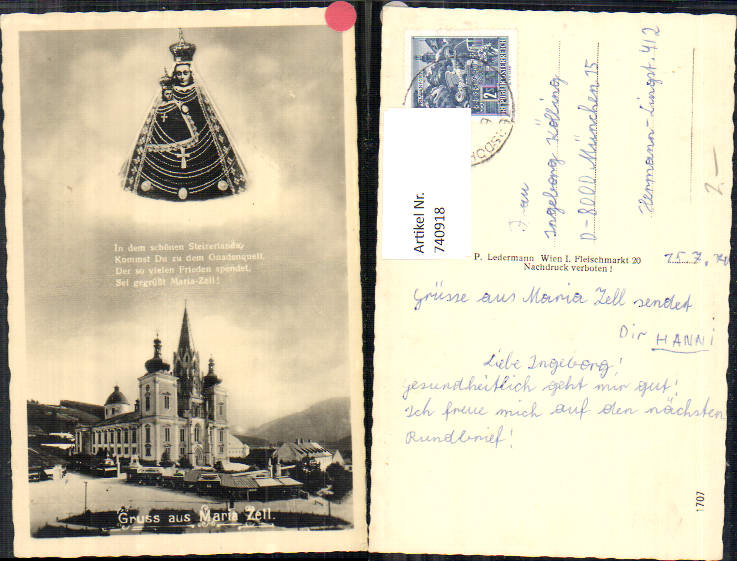 In dem schönen Steirerlande,
Kommst Du zu dem Gnadenquell,
Der so vielen Frieden spendet,
Sei gegrüßt Maria-Zell!
Gruss aus Maria Zell.
2
Artikel Nr.
740918
An
Ingeborg Kölling
D-8000 München 75
Hermann-Lingst. 412
2.—
P. Ledermann Wien I. Fleischmarkt 20
Nachdruck verboten!
15.7.
Grüsse aus Maria Zell sendet
Dir HANNi
Liebe Ingeborg!
gesundheitlich geht mir gut!
Ich freue mich auf den nächsten
Rundbrief!
1707